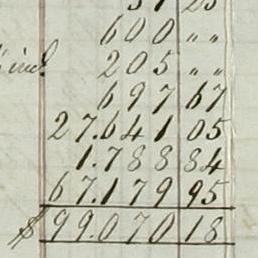 600 " "
incl. 205 " "
697 67
27.641 05
1.788 84
67.179 95
$ 99.070 18